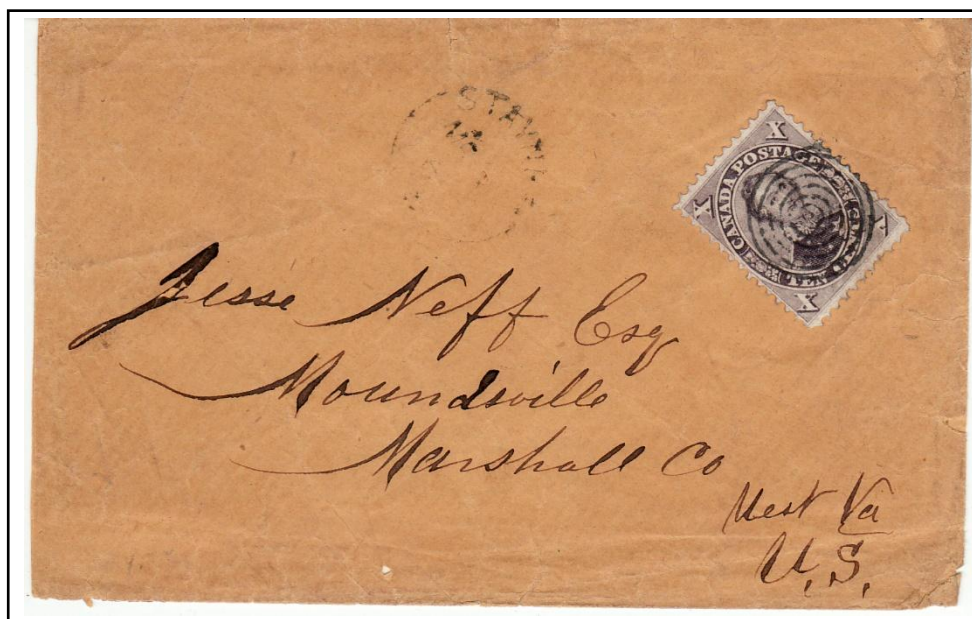 STAYN
X
X
X
CANADA POSTAGE
Jesse Neff Esq
Moundsville
Marshall Co
West Va
U.S.